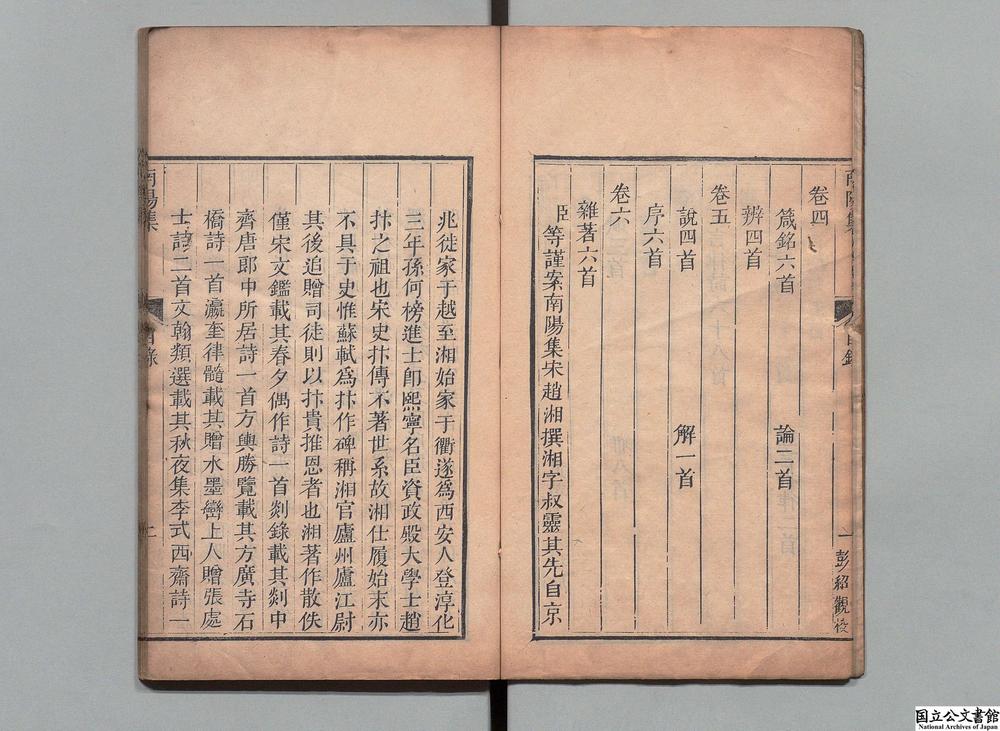 南陽集 目錄 一 彭紹觀校
卷四
箴銘六首 論二首
辨四首
卷五
說四首 解一首
序六首
卷六
雜著六首
臣等謹案南陽集宋趙湘撰湘字叔靈其先自京
兆徙家于越至湘始家于衢遂為西安人登淳化
三年孫何榜進士卽熙寧名臣資政殿大學士趙
抃之祖也宋史抃傳不著世系故湘仕履始末亦
不具于史惟蘇軾為抃作碑稱湘官廬州廬江尉
其後追贈司徒則以抃貴推恩者也湘著作散佚
僅宋文鑑載其春夕偶作詩一首剡錄載其剡中
齊唐郎中所居詩一首方輿勝覽載其方廣寺石
橋詩一首瀛奎律髓載其贈水墨巒上人贈張處
士詩二首文翰類選載其秋夜集李式西齋詩一
南陽集 目錄 二
国立公文書館
National Archives of Japan